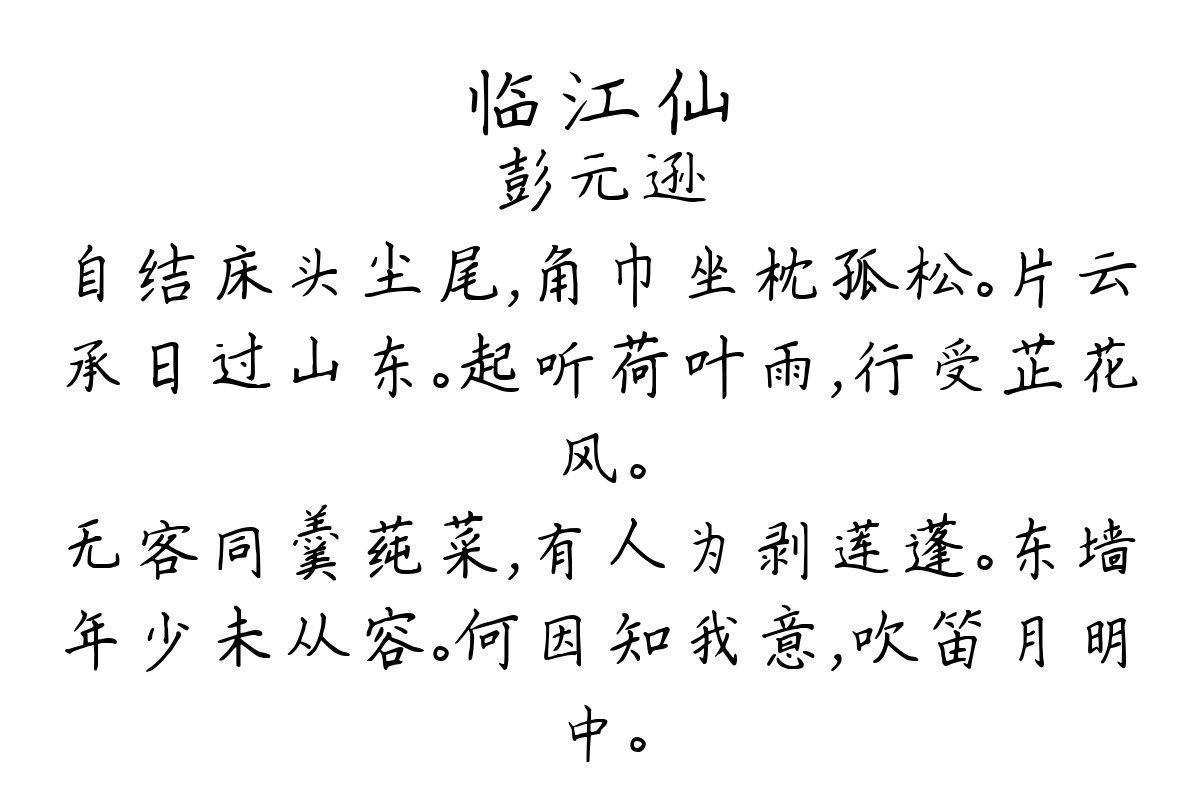 临江仙
彭元逊
自结床头尘尾,角巾坐枕孤松。片云
承日过山东。起听荷叶雨,行受芷花
风。
无客同羹莼菜,有人为剥莲蓬。东墙
年少未从容。何因知我意,吹笛月明
中。